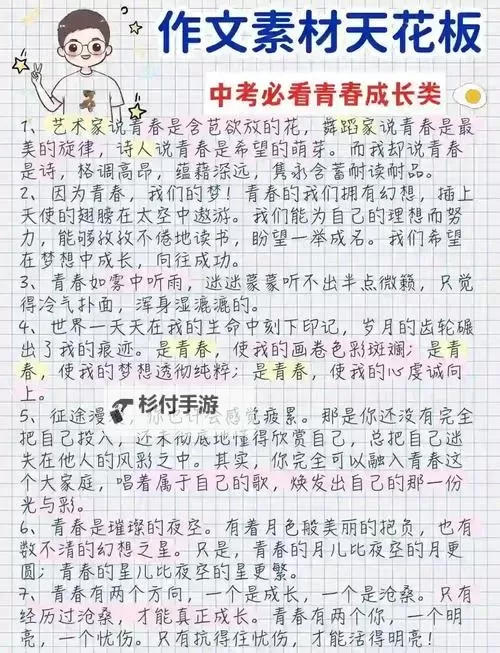 作文素材天花板
中考必看青春成长类
1、艺术家说青春是含苞欲放的花，舞蹈家说青春是最
美的旋律，诗人说青春是希望的萌芽。而我却说青春
是诗，格调高昂，蕴藉深远，隽永含蓄耐读耐品。
2、因为青春，我们的梦！青春的我们拥有幻想，插上
天使的翅膀在太空中遨游。我们能为自己的理想而努
力，能够孜孜不倦地读书，盼望一举成名。我们希望
在梦想中成长，向往成功。
3、青春如雾中听雨，迷迷蒙蒙听不出半点微籁，只觉
得冷气扑面，浑身湿漉漉的。
4、世界一天天在我的生命中刻下印记，岁月的齿轮碾
出了我的痕迹。是青春，使我的画卷色彩斑斓；是青
春，使我的梦想透彻纯粹；是青春，使我的心虔诚向
上。
5、征途漫 会感觉疲累。那是你还没有完全
把自己投入，还未彻底地懂得欣赏自己，总把自己迷
失在他人的风彩之中。其实，你完全可以融入青春这
个大家庭，唱着属于自己的歌，焕发出自己的那一份
光与彩。
6、青春是璀璨的夜空。有着月色般美丽的抱负，也有
数不清的幻想之星。只是，青春的月儿比夜空的月更
圆；青春的星儿比夜空的星更繁。
7、青春有两个方向，一个是成长，一个是沧桑。只有
经历过沧桑，才能真正成长。青春有两个你，一个明
亮，一个忧伤。只有抗得住忧伤，才能活得明亮！
杉付手游